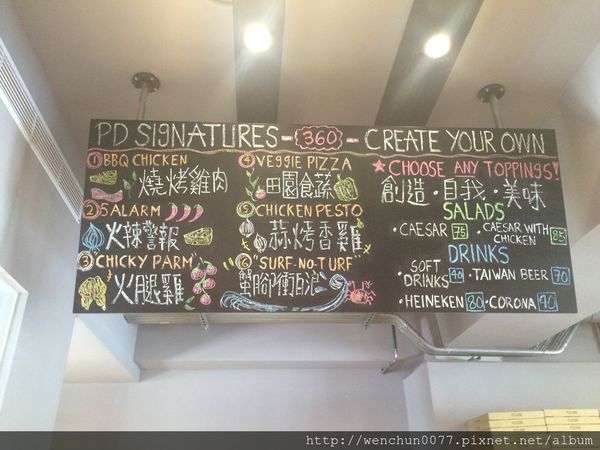 PD SIGNATURES -360- CREATE YOUR OWN
① BBQ CHICKEN
燒烤雞肉
② 5 ALARM
火辣警報
③ "CHICKY PARM"
火腿雞
④ VEGGIE PIZZA
田園食蔬
⑤ CHICKEN PESTO
蒜烤香雞
⑥ "SURF-NO-TURF"
蟹腳衝浪
★ CHOOSE ANY TOPPINGS!
創造·自我·美味
SALADS
·CAESAR 75 ·CAESAR WITH CHICKEN 85
DRINKS
·SOFT DRINKS 40 ·TAIWAN BEER 70
·HEINEKEN 80 ·CORONA 90
http://wenchun0077.pixnet.net/album